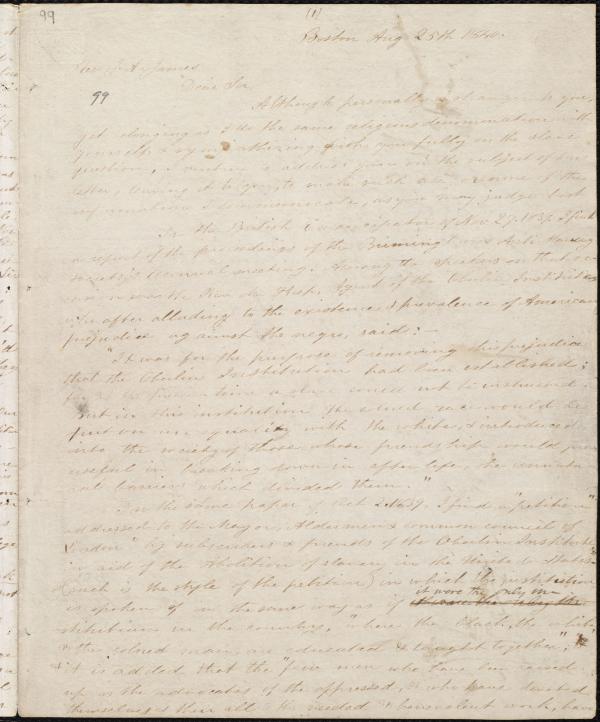 99
(1)
Boston Aug 25th 1840.
Rev. J. A. James
Dear Sir,
99
Although personally a stranger to you,
yet belonging as I do the same religious denomination with
yourself, & sympathizing with you fully on the slave
question, I venture to address you on the subject of this
letter, leaving it to you, to make such use of the
information I communicate, as you may judge best
In the British Emancipator of Nov 27. 1839, I find
a report of the proceedings of the Birmingham Anti Slavery
Society's Annual meeting. Among the speakers on that
was the Rev. Agent of the Oberlin Institute,
who after alluding to the existence & prevalence of American
prejudice against the negro, said:—
"It was for the purpose of removing this prejudice
that the Oberlin Institution had been established;
could not be instructed.
But in this institution the colored race would be
put on an equality with the whites, & introduced
into the society of those whose friendship would,
useful in breaking down in after life, the
barriers which divided them."
In the same paper of Oct 2. 1839. I find a "petition"
addressed to the Mayor, Aldermen & common council of
London" by subscribers & friends of the Oberlin Institute
in aid of the Abolition of slavery in the United States"
(such is the style of the petition) in which the institution
it were the only in-
is spoken of in the same way as if
stitution in the country, "where the black, the white
& the colored man, are educated & taught together;"
& it is added that the "five men who have been raised
up as the advocates of the oppressed, & who have devoted
themselves their all to the needed & benevolent work, have